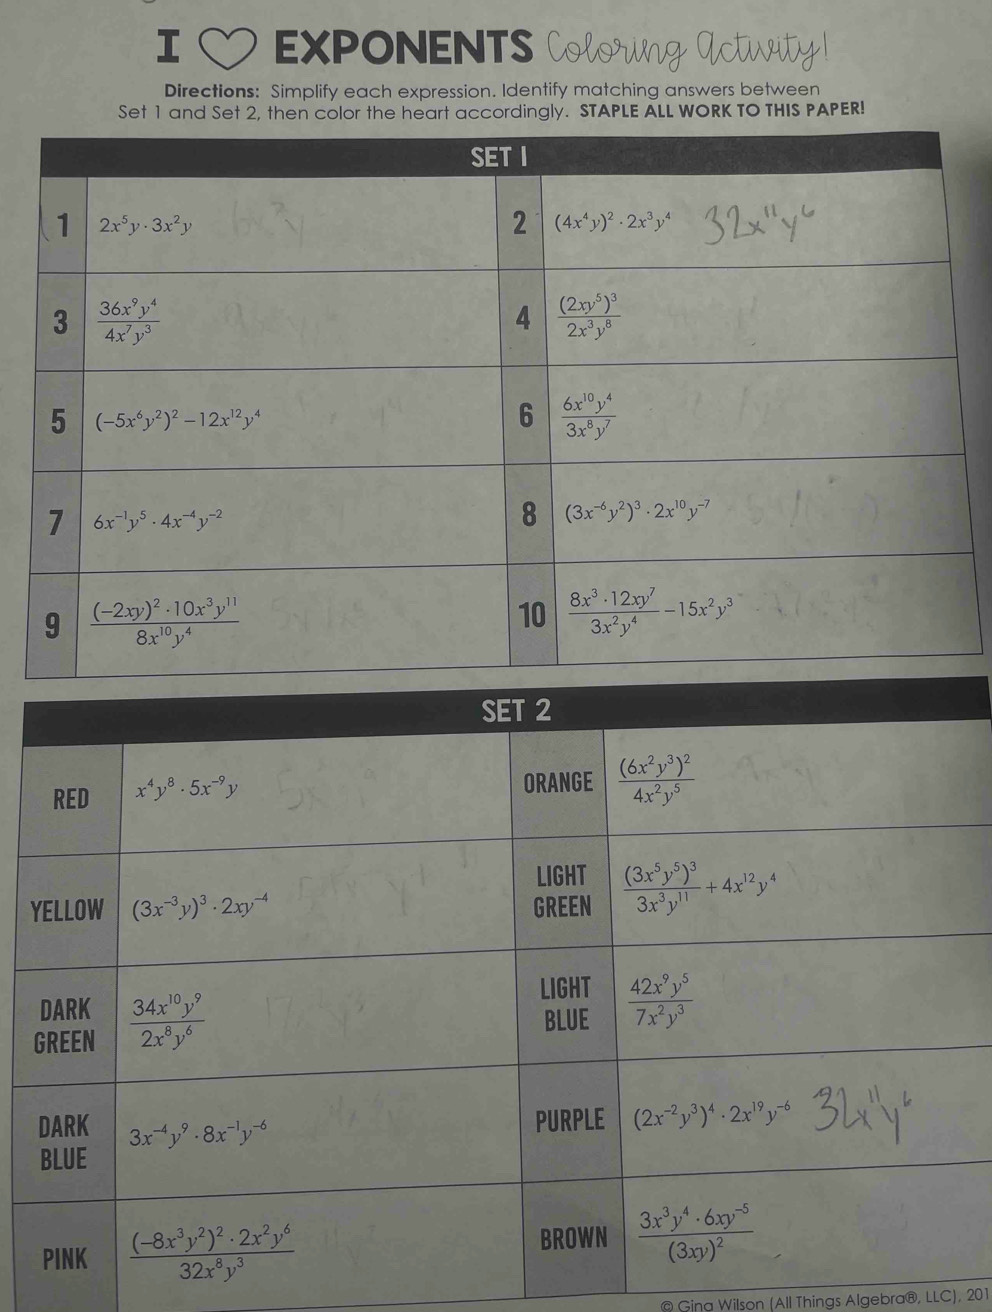 I ♡ EXPONENTS Coloring Activity!
Directions: Simplify each expression. Identify matching answers between
Set 1 and Set 2, then color the heart accordingly. STAPLE ALL WORK TO THIS PAPER!
SET 1
1 2x⁵y · 3x²y
2 (4x⁴y)² · 2x³y⁴ 32x¹¹y⁶
3 36x⁹y⁴ / 4x⁷y³
4 (2xy⁵)³ / 2x³y⁸
5 (−5x⁶y²)² − 12x¹²y⁴
6 6x¹⁰y⁴ / 3x⁸y⁷
7 6x⁻¹y⁵ · 4x⁻⁴y⁻²
8 (3x⁻⁶y²)³ · 2x¹⁰y⁻⁷
9 (−2xy)² · 10x³y¹¹ / 8x¹⁰y⁴
10 8x³ · 12xy⁷ / 3x²y⁴ − 15x²y³
SET 2
RED x⁴y⁸ · 5x⁻⁹y
ORANGE (6x²y³)² / 4x²y⁵
YELLOW (3x⁻³y)³ · 2xy⁻⁴
LIGHT GREEN (3x⁵y⁵)³ / 3x³y¹¹ + 4x¹²y⁴
DARK GREEN 34x¹⁰y⁹ / 2x⁸y⁶
LIGHT BLUE 42x⁹y⁵ / 7x²y³
DARK BLUE 3x⁻⁴y⁹ · 8x⁻¹y⁻⁶
PURPLE (2x⁻²y³)⁴ · 2x¹⁹y⁻⁶ 32x¹¹y⁶
PINK (−8x³y²)² · 2x²y⁶ / 32x⁸y³
BROWN 3x³y⁴ · 6xy⁻⁵ / (3xy)²
© Gina Wilson (All Things Algebra®, LLC), 201